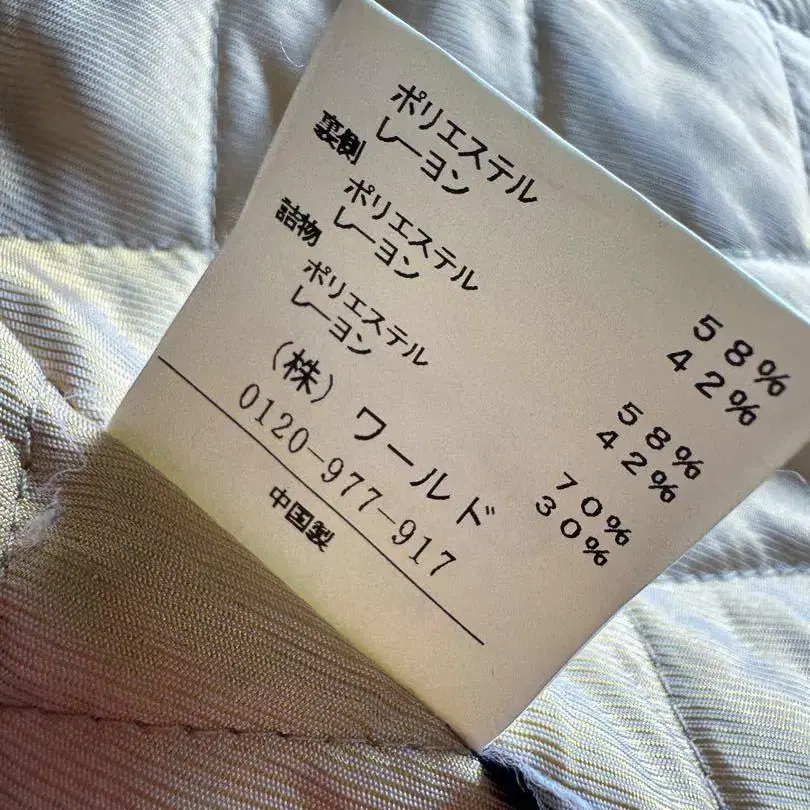 ポリエステル 58%
レーヨン 42%
裏側
ポリエステル 58%
レーヨン 42%
詰物
ポリエステル 70%
レーヨン 30%
(株) ワールド
0120-977-917
中国製